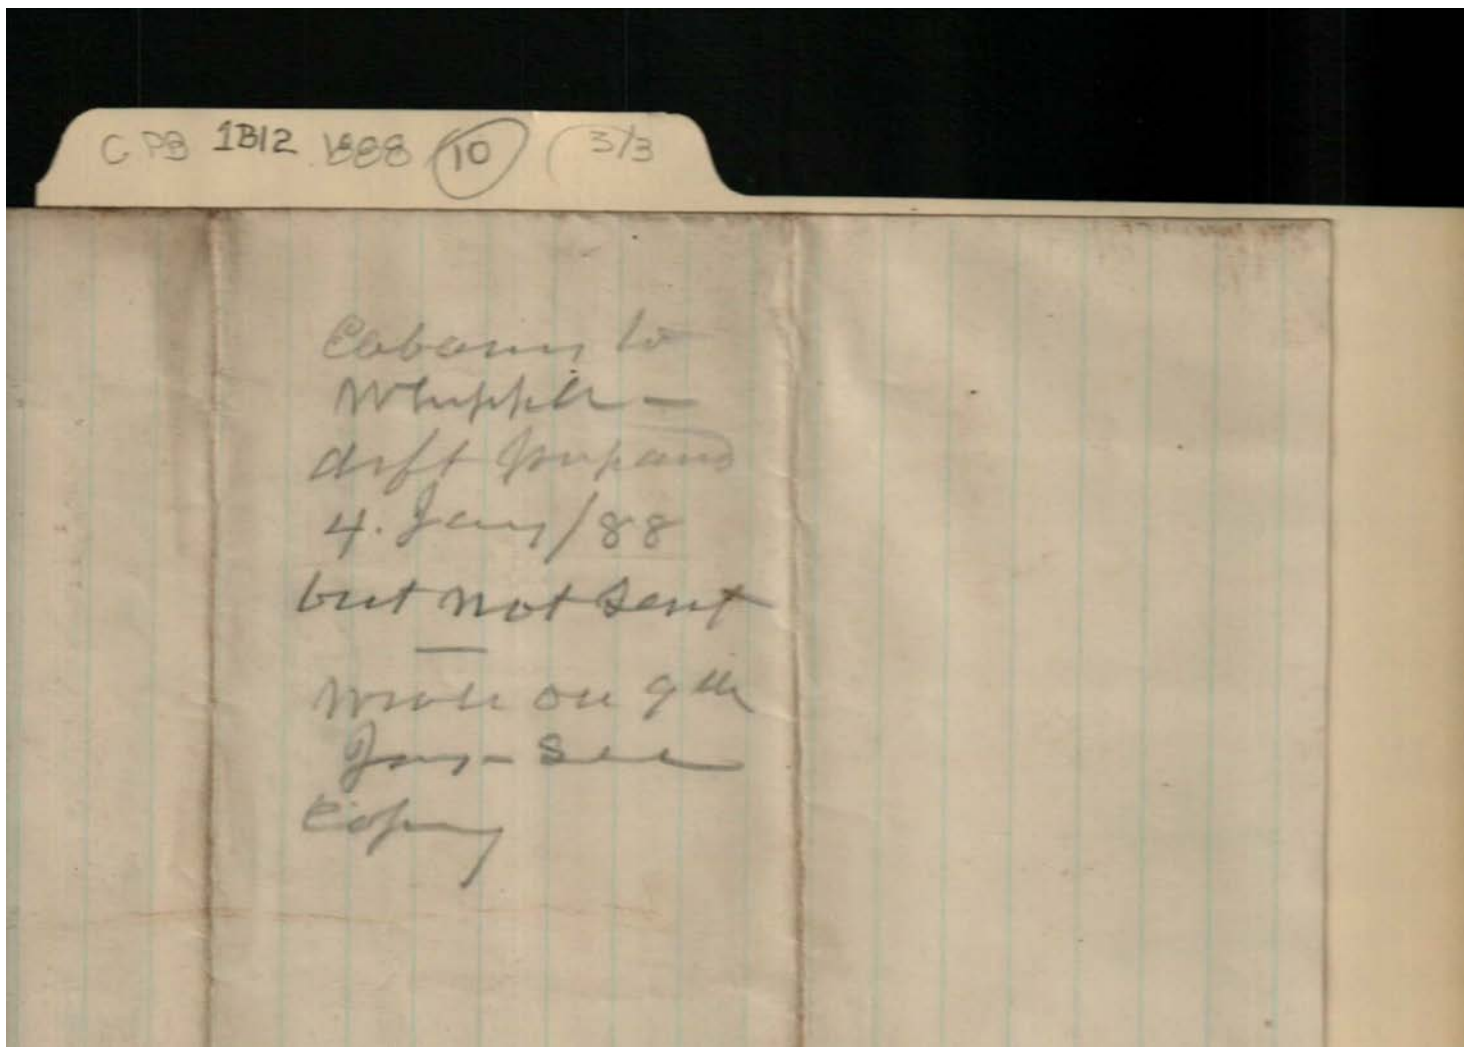 CPB 1B12 1888 10 (3/3
Cabany to
Whipple -
dift prepared
4. Jany/88
but not sent
Wrote on 9th
Jany - See
Copy